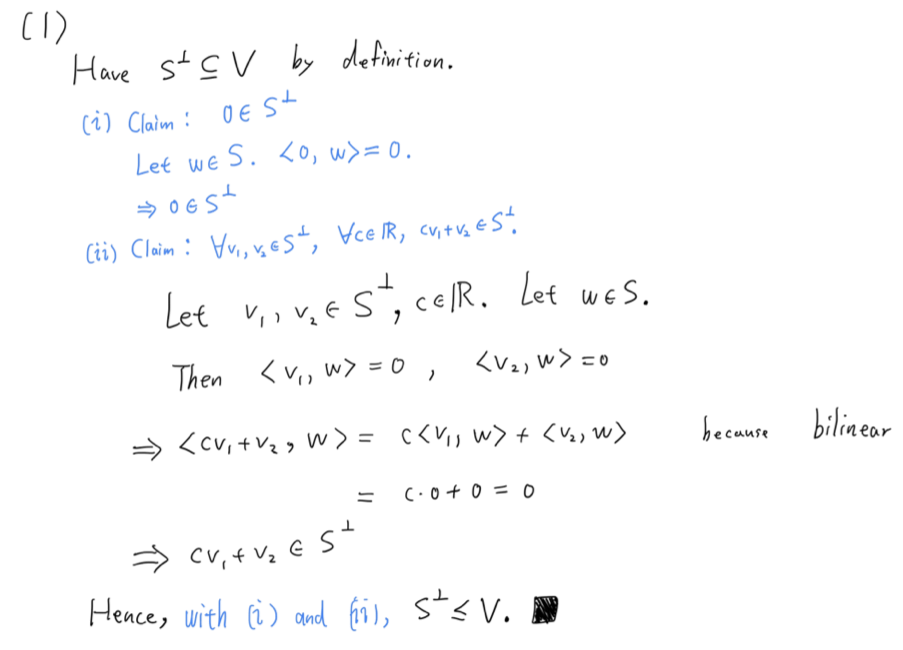 (1)
Have S⊥ ⊆ V by definition.
(i) Claim : 0 ∈ S⊥
Let w ∈ S. <0, w> = 0.
⇒ 0 ∈ S⊥
(ii) Claim : ∀v₁, v₂ ∈ S⊥, ∀c ∈ ℝ, cv₁+v₂ ∈ S⊥.
Let v₁, v₂ ∈ S⊥, c ∈ ℝ. Let w ∈ S.
Then <v₁, w> = 0 , <v₂, w> = 0
⇒ <cv₁+v₂, w> = c<v₁, w> + <v₂, w> because bilinear
= c·0 + 0 = 0
⇒ cv₁ + v₂ ∈ S⊥
Hence, with (i) and (ii), S⊥ ≤ V. ■